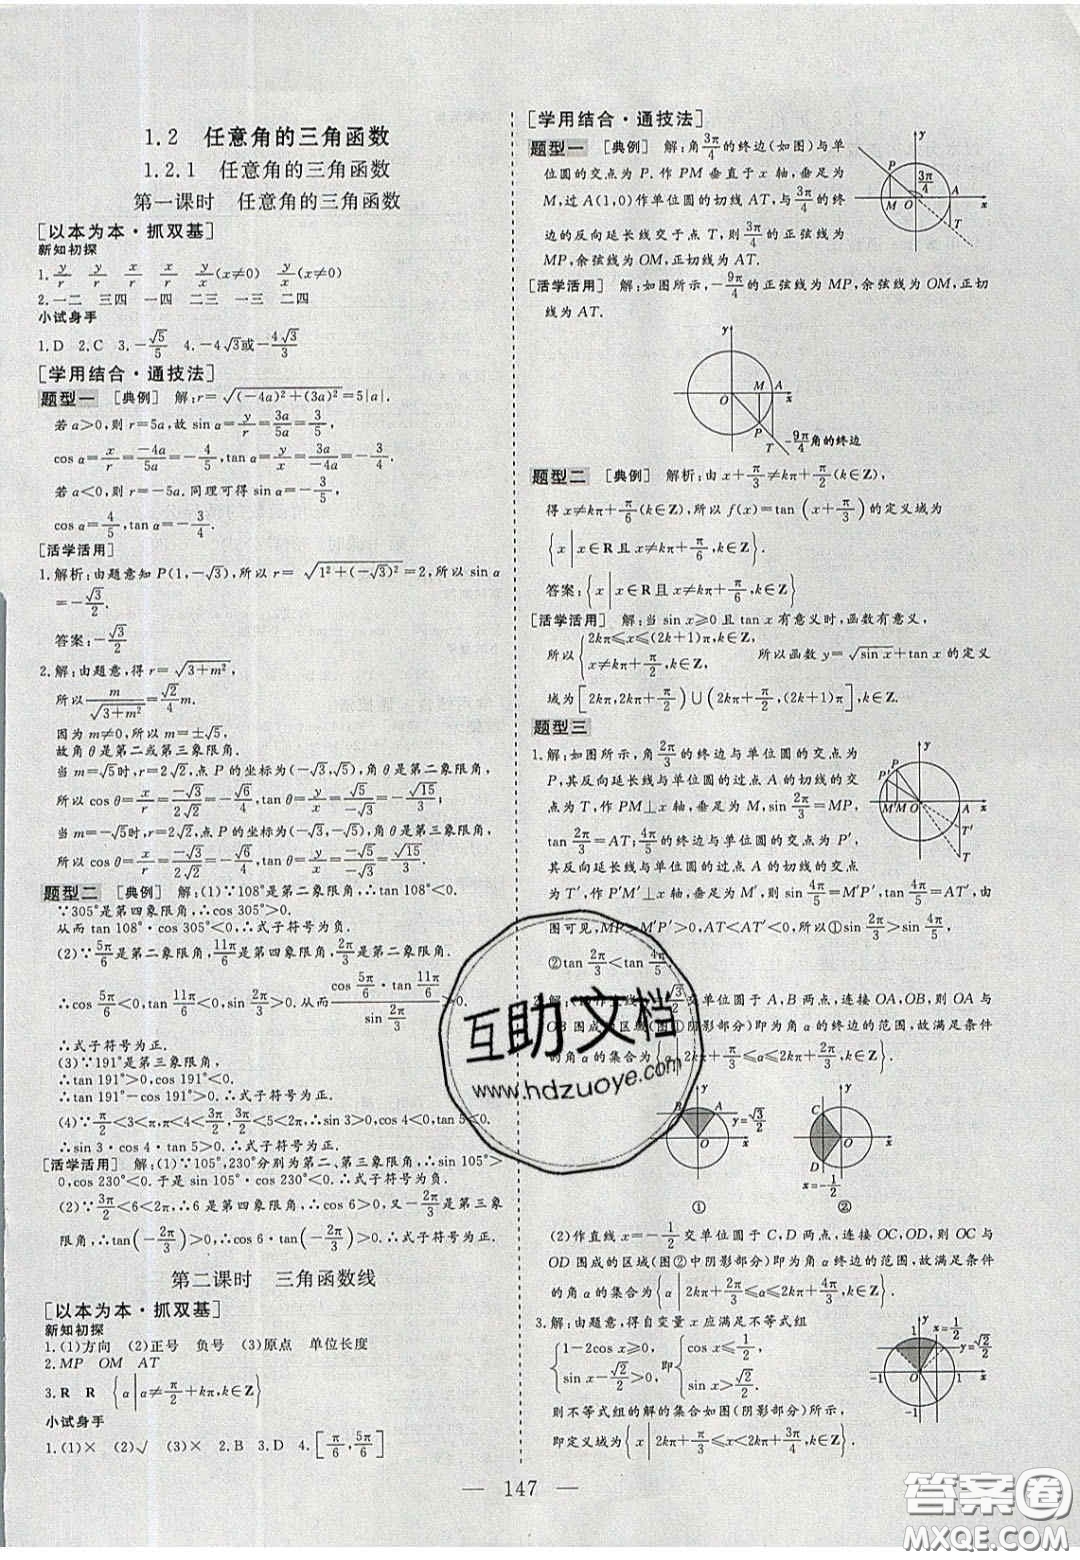 1.2 任意角的三角函数
1.2.1 任意角的三角函数
第一课时 任意角的三角函数
[以本为本·抓双基]
新知初探
1. y/r y/r x/r x/r y/x(x≠0) y/x(x≠0)
2.一二 三四 一四 二三 一三 二四
小试身手
1.D 2.C 3.-√5/5 4.-4√3或-4√3/3
[学用结合·通技法]
题型一 [典例] 解:r=√((-4a)²+(3a)²)=5|a|.
若a>0,则r=5a,故sin α=y/r=3a/5a=3/5,
cos α=x/r=-4a/5a=-4/5,tan α=-3/4.
若a<0,则r=-5a.同理可得sin α=-3/5,
cos α=4/5,tan α=-3/4.
[活学活用]
1.解析:由题意知P(1,-√3),所以r=√(1²+(-√3)²)=2,所以sin α
=-√3/2.
答案:-√3/2
2.解:由题意,得r=√(3+m²),
所以m/√(3+m²)=√2/4 m.
因为m≠0,所以m=±√5,
故角θ是第二或第三象限角.
当m=√5时,r=2√2,点P的坐标为(-√3,√5),角θ是第二象限角,
所以cos θ=x/r=-√3/2√2=-√6/4,tan θ=y/x=√5/-√3=-√15/3.
当m=-√5时,r=2√2,点P的坐标为(-√3,-√5),角θ是第三象限角,
所以cos θ=x/r=-√3/2√2=-√6/4,tan θ=y/x=-√5/-√3=√15/3.
题型二 [典例] 解:(1)∵108°是第二象限角,∴tan 108°<0.
∵305°是第四象限角,∴cos 305°>0.
从而tan 108°·cos 305°<0,∴式子符号为负.
(2)∵5π/6是第二象限角,11π/6是第四象限角,2π/3是第二象限角,
∴cos 5π/6<0,tan 11π/6<0,sin 2π/3>0.从而(cos 5π/6·tan 11π/6)/(sin 2π/3)>0.
∴式子符号为正.
(3)∵191°是第三象限角,
∴tan 191°>0,cos 191°<0.
∴tan 191°-cos 191°>0.∴式子符号为正.
(4)∵π/2<3<π,π<4<3π/2,3π/2<5<2π,∴sin 3>0,cos 4<0,tan 5<0,
∴sin 3·cos 4·tan 5>0.∴式子符号为正.
[活学活用] 解:(1)∵105°,230°分别为第二、第三象限角,∴sin 105°>
0,cos 230°<0.于是sin 105°·cos 230°<0,∴式子符号为负.
(2)∵3π/2<6<2π,∴6是第四象限角,∴cos 6>0,又-2π/3是第三象
限角,∴tan(-2π/3)>0,∴cos 6·tan(-2π/3)>0,∴式子符号为正.
第二课时 三角函数线
[以本为本·抓双基]
新知初探
1.(1)方向 (2)正号 负号 (3)原点 单位长度
2.MP OM AT
3.R R {α|α≠π/2+kπ,k∈Z}
小试身手
1.(1)× (2)√ (3)× 2.B 3.D 4.[π/6,5π/6]
[学用结合·通技法]
题型一 [典例] 解:角3π/4的终边(如图)与单位
圆的交点为P.作PM垂直于x轴,垂足为
M,过A(1,0)作单位圆的切线AT,与3π/4的终
边的反向延长线交于点T,则3π/4的正弦线为
MP,余弦线为OM,正切线为AT.
[活学活用] 解:如图所示,-9π/4的正弦线为MP,余弦线为OM,正切
线为AT.
-9π/4角的终边
题型二 [典例] 解析:由x+π/3≠kπ+π/2(k∈Z),
得x≠kπ+π/6(k∈Z),所以f(x)=tan(x+π/3)的定义域为
{x|x∈R且x≠kπ+π/6,k∈Z}.
答案:{x|x∈R且x≠kπ+π/6,k∈Z}
[活学活用] 解:当sin x≥0且tan x有意义时,函数有意义,
所以{2kπ≤x≤(2k+1)π, x≠kπ+π/2, (k∈Z).所以函数y=√sin x+tan x的定义
域为[2kπ,2kπ+π/2)∪(2kπ+π/2,(2k+1)π](k∈Z).
题型三
1.解:如图所示,角2π/3的终边与单位圆的交点为
P,其反向延长线与单位圆的过点A的切线的交
点为T,作PM⊥x轴,垂足为M,sin 2π/3=MP,
tan 2π/3=AT;4π/5的终边与单位圆的交点为P′,
其反向延长线与单位圆的过点A的切线的交点
为T′,作P′M′⊥x轴,垂足为M′,则sin 4π/5=M′P′,tan 4π/5=AT′,由
图可见,MP>M′P′>0,AT<AT′<0,所以①sin 2π/3>sin 4π/5,
②tan 2π/3<tan 4π/5.
√3/2交单位圆于A,B两点,连接OA,OB,则OA与
OB围成的区域(图①阴影部分)即为角α的终边的范围,故满足条件
的角α的集合为{α|2kπ+π/3≤α≤2kπ+2π/3,k∈Z}.
① ②
(2)作直线x=-1/2交单位圆于C,D两点,连接OC,OD,则OC与
OD围成的区域(图②中阴影部分)即为角α终边的范围,故满足条件的
角α的集合为{α|2kπ+2π/3≤α≤2kπ+4π/3,k∈Z}.
3.解:由题意,得自变量x应满足不等式组
{1-2cos x≥0, sin x-√2/2>0, 即{cos x≤1/2, sin x>√2/2.
则不等式组的解的集合如图(阴影部分)所示,
即定义域为{x|2kπ+π/3≤x<2kπ+3π/4,k∈Z}.
— 147 —
互助文档
www.hdzuoye.com
答案圈
MXQE.COM